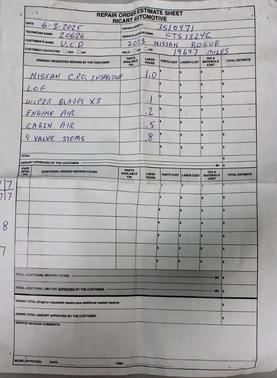 REPAIR ORDER/ESTIMATE SHEET
RICART AUTOMOTIVE
DATE: 6-3-2025 3510471
TECHNICIAN NAME: 20626
CUSTOMER'S NAME: U.C.D 2023 NISSAN ROGUE
CUSTOMER CONTACTED: YES NO 19647 MILES
ORIGINAL REQUESTED REPAIRS BY THE CUSTOMER PARTS AVAILABLE Y/N LABOR HOURS PARTS COST LABOR COST TAX & MATERIALS COST TOTAL ESTIMATE
NISSAN C.P.O. INSPECTION 1.0
LOF
WIPER BLADES X3 .1
ENGINE AIR .2
CABIN AIR .5
4 VALVE STEMS .8
TOTAL
AMOUNT APPROVED BY THE CUSTOMER
ADDITIONAL NEEDED REPAIRS FOUND PARTS AVAILABLE Y/N LABOR HOURS PARTS COST LABOR COST TAX & MATERIALS COST TOTAL ESTIMATE
TOTAL ADDITIONAL REPAIRS FOUND
TOTAL ADDITIONAL REPAIRS APPROVED BY THE CUSTOMER
GRAND TOTAL (Original requested repairs plus additional needed repairs)
GRAND TOTAL AMOUNT APPROVED BY THE CUSTOMER
SERVICE ADVISOR COMMENTS:
WORK APPROVED: DATE: TIME: